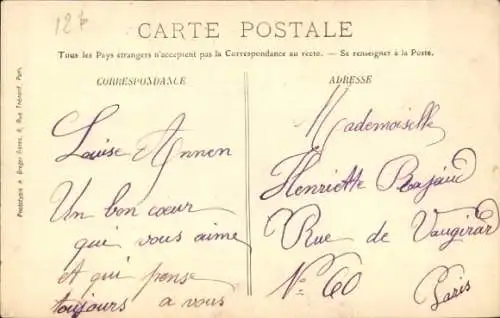 12 f
CARTE POSTALE
Tous les Pays étrangers n'acceptent pas la Correspondance au recto. — Se renseigner à la Poste.
CORRESPONDANCE
Louise Annen
Un bon cœur
qui vous aime
et qui pense
toujours a vous
ADRESSE
Mademoiselle
Henriette
Rue de Vaugirar
No 60
Paris
Phototypie A. Breger Frères, 9, Rue Thénard, Paris